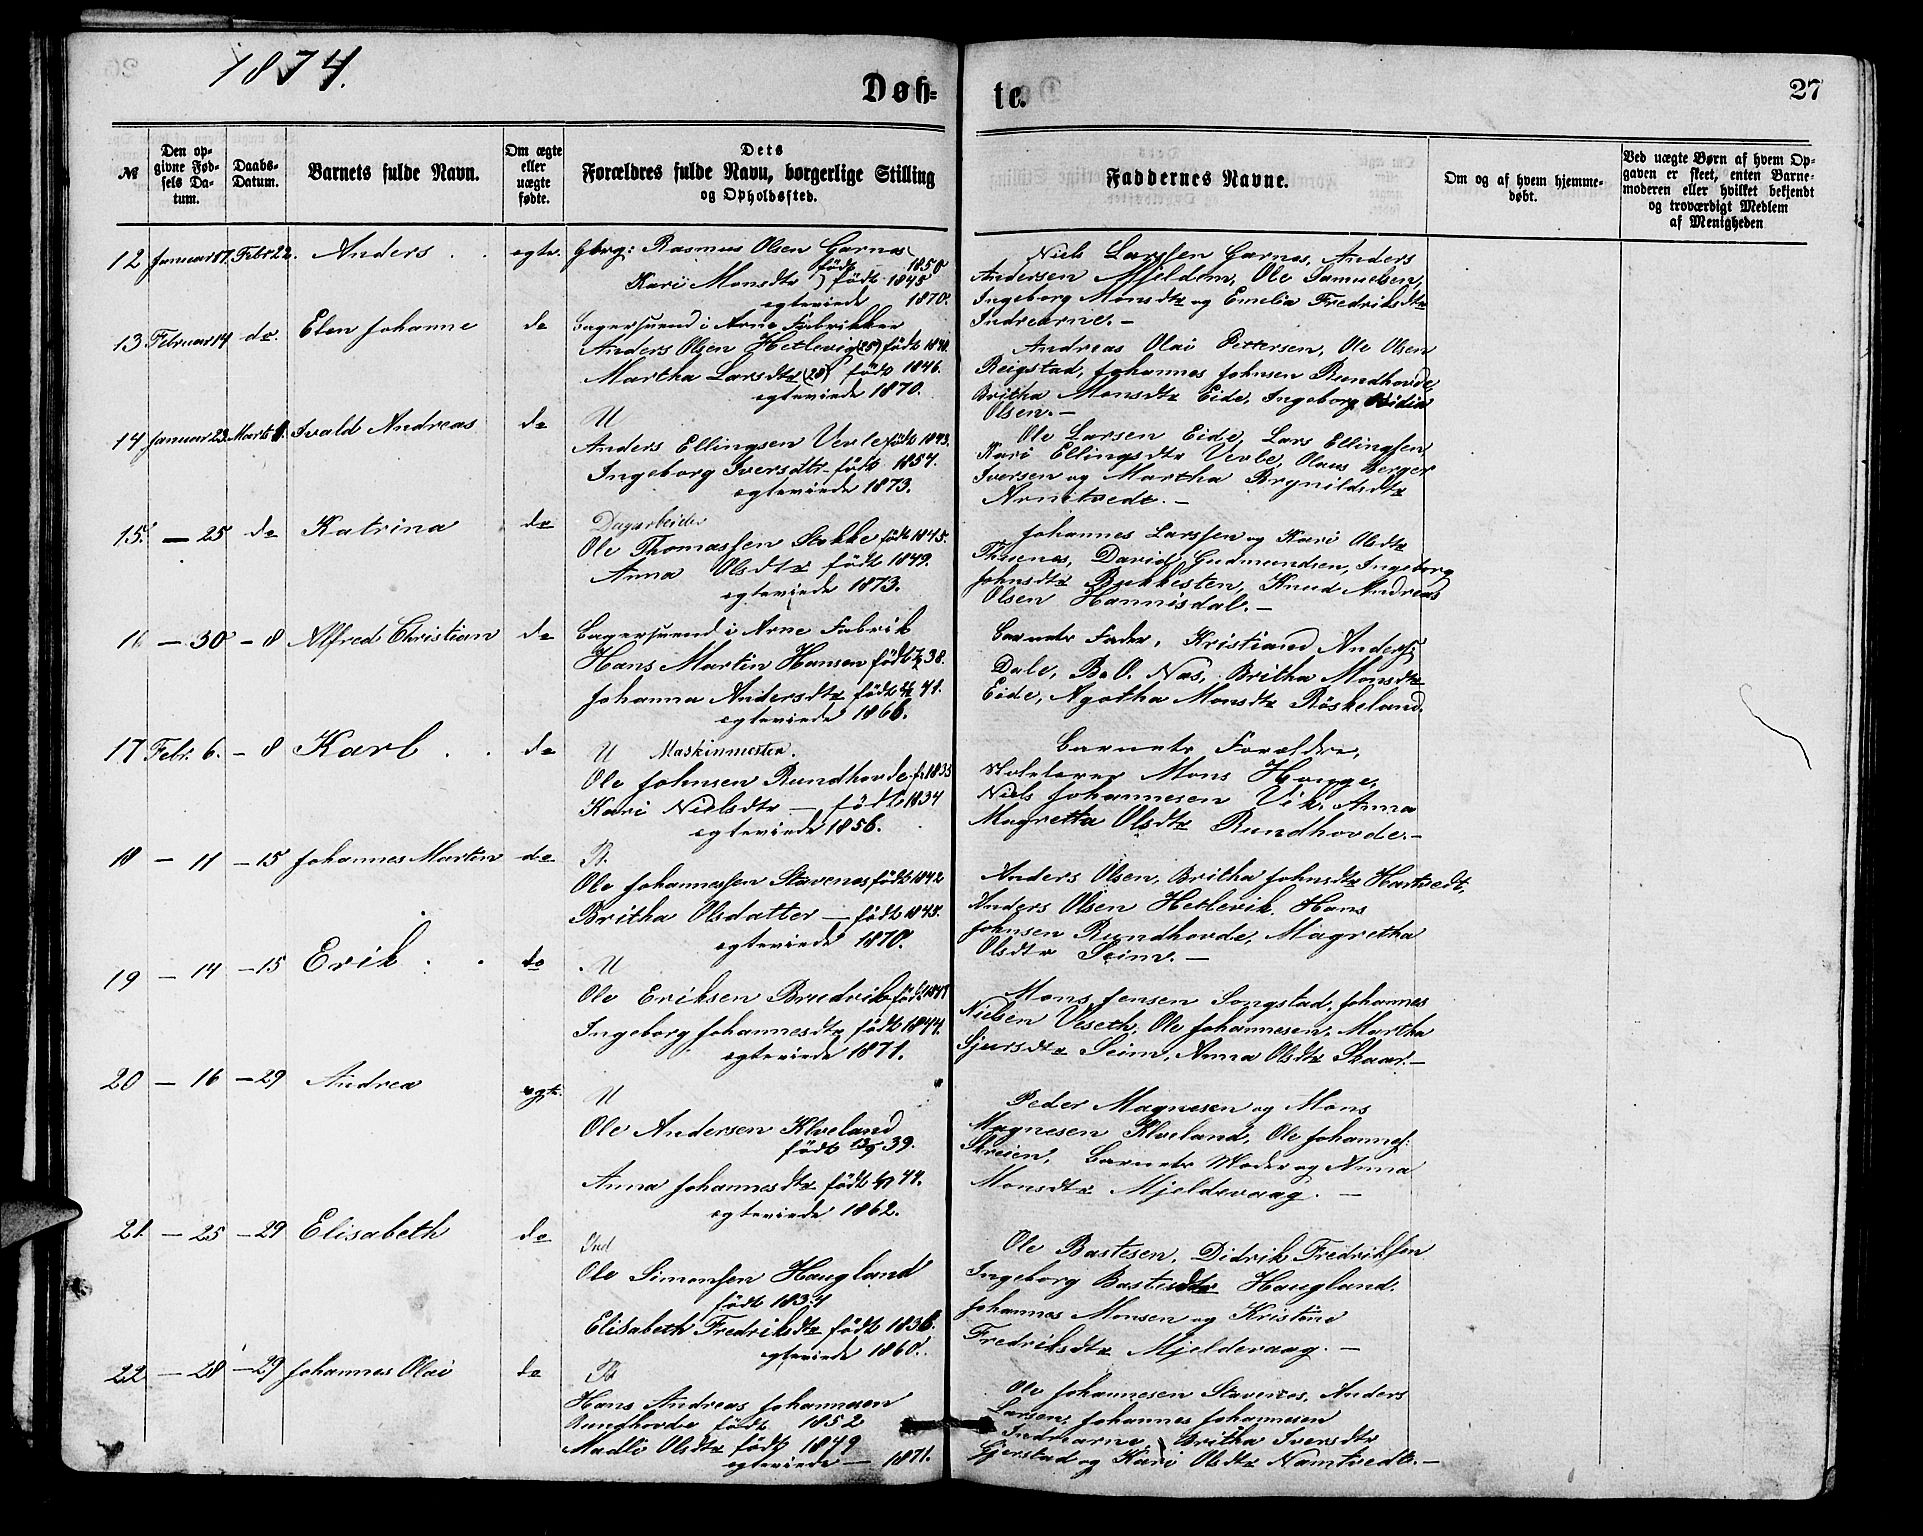 1874.
Døb-
te.
27
№
Den op-
givne Fød-
sels Da-
tum.
Daabs-
Datum.
Barnets fulde Navn.
Om ægte
eller
uægte
fødte.
Dets
Forældres fulde Navn, borgerlige Stilling
og Opholdssted.
Faddernes Navne.
Om og af hvem hjemme-
døbt.
Ved uægte Børn af hvem Op-
gaven er skeet, enten Barne-
moderen eller hvilket bekjendt
og troværdigt Medlem
af Menigheden
12 Januar 17. Febr 22. Anders . . egte.
Rasmus Olsen Garnes
født 1850
Kari Monsdtr født 1845
egteviede 1870.
Niels Larssen Garnes, Anders
Andersen Mjeldem, Ole Samuelsen,
Ingeborg Monsdtr og Emelia Fredriksdtr
Indrearne. –
13 Februar 14 do. Elen Johanne do
Bagersvend i Arne Fabrikker
Anders Olsen Hetlevig (25) født 1848.
Martha Larsdtr (28) født 1846.
egteviede 1870.
Andreas Olai Pettersen, Ole Olsen
Reigstad, Johannes Johnsen Rundhovde,
Britha Monsdtr Eide, Ingeborg
Olsen. –
14 Januar 23. Marts 1. Ivald Andreas do
U
Anders Ellingsen Verle født 1843.
Ingeborg Iversdtr født 1854.
egteviede 1873.
Ole Larsen Eide, Lars Ellingsen
Kari Ellingsdtr Verle, Olaus Berger
Iversen og Martha Brynildsdtr
Arnetvedt. –
15. – 25 do Katrina do
Dagarbeider
Ole Thomassen Stokke født 1845.
Anna Olsdtr født 1849.
egteviede 1873.
Johannes Larssen og Kari Olsdtr
Thuenes, David Gudmundsen, Ingeborg
Johnsdtr Bukkesten, Knud Andreas
Olsen Hannisdal. –
16 – 30 – 8 Alfred Christian do
Bagersvend i Arne Fabrik
Hans Martin Hansen født 38.
Johanna Andersdtr født 41.
egteviede 1866.
Barnets Fader, Kristiand Anders:
Dale, B. O. Nas, Britha Monsdtr
Eide, Agotha Monsdtr Röskeland.
17 Febr. 6. – 8 Karl . . do
U Maskinmester.
Ole Johnsen Rundhovde f. 1835
Kari Nielsdtr – født 1834
egteviede 1856.
Barnets Forældre,
Skolelærer Mons Hauge,
Niels Johannesen Vik, Anna
Magretta Olsdtr Rundhovde. –
18 – 11 – 15 Johannes Martin do
B.
Ole Johannessen Stavenes født 1842
Britha Olsdatter – født 1845.
egteviede 1870.
Anders Olsen, Britha Johnsdtr Hartvedt,
Anders Olsen Hetlevik, Hans
Johnsen Rundhovde, Magretha
Olsdtr Seim. –
19 – 14 – 15 Erik . . do
U
Ole Eriksen Brudvik født
Ingeborg Johannesdtr født 1844.
egteviede 1871.
Mons Jensen Songstad, Johannes
Nielsen Veseth, Ole Johannesen, Martha
Sjursdtr Seim, Anna Olsdtr Skaar. –
20 – 16 – 29 Andrea egte.
U
Ole Andersen Klveland
født 39.
Anna Johannesdtr født 44.
egteviede 1862.
Peder Magnesen og Mons
Magnesen Klveland, Ole Johannes:
Skreien, Barnets Moder og Anna
Monsdtr Mjeldevaag. –
21. – 25 – 29 Elisabeth do
Ind
Ole Simonsen Haugland
født 1834
Elisabeth Fredriksdtr født 1836.
egteviede 1860.
Ole Bastesen, Didrik Fredriksen
Ingeborg Bastesdtr Haugland.
Johannes Monsen og Kristine
Fredriksdtr Mjeldevaag. –
22 – 28 – 29 Johannes Olai do
Hans Andreas Johannesen
Rundhovde født 1852
Madli Olsdtr født 1849
egteviede – 1871.
Ole Johannesen Stavenes, Anders
Larsen, Johannes Johannesen
Indrearne, Britha Iversdtr
Gjerstad og Kari Olsdtr Namtvedt. –